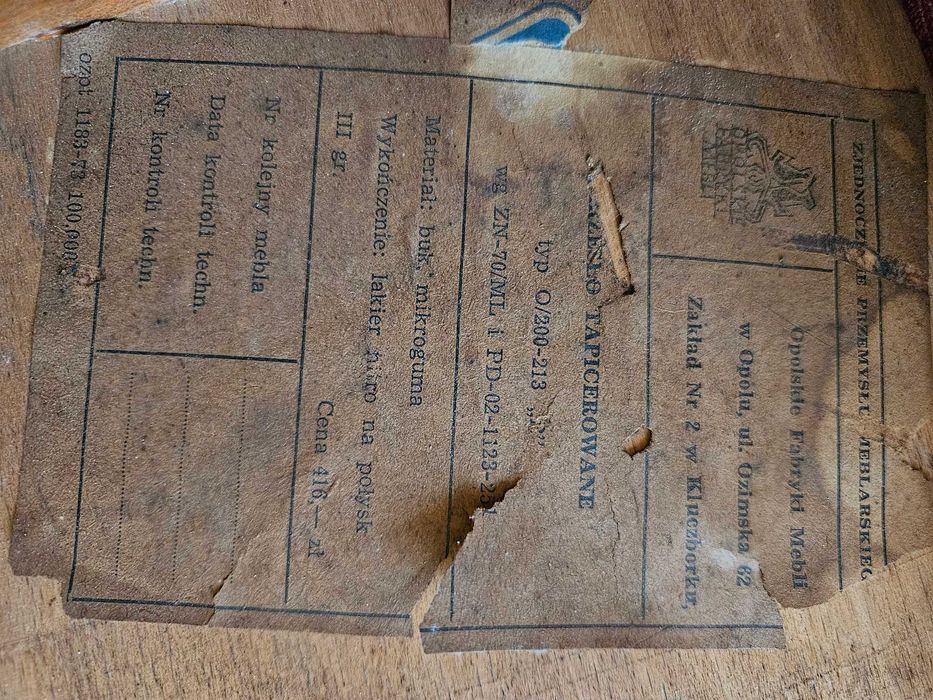 ZJEDNOCZE IE PRZEMYSŁU MEBLARSKIEG
OPOLSKIE
FABRYKI
MEBLI
Opolskie Fabryki Mebli
w Opolu, ul. Ozimska 62
Zakład Nr 2 w Kluczborku,
RZESŁO TAPICEROWANE
typ O/200-213
wg ZN-70/ML i PD-02-1123-25
Materiał: buk, mikroguma
Wykończenie: lakier nitro na połysk
III gr.
Cena 416,— zł
Nr kolejny mebla
Data kontroli techn.
Nr kontroli techn.
ozpł 1183-73 100.000